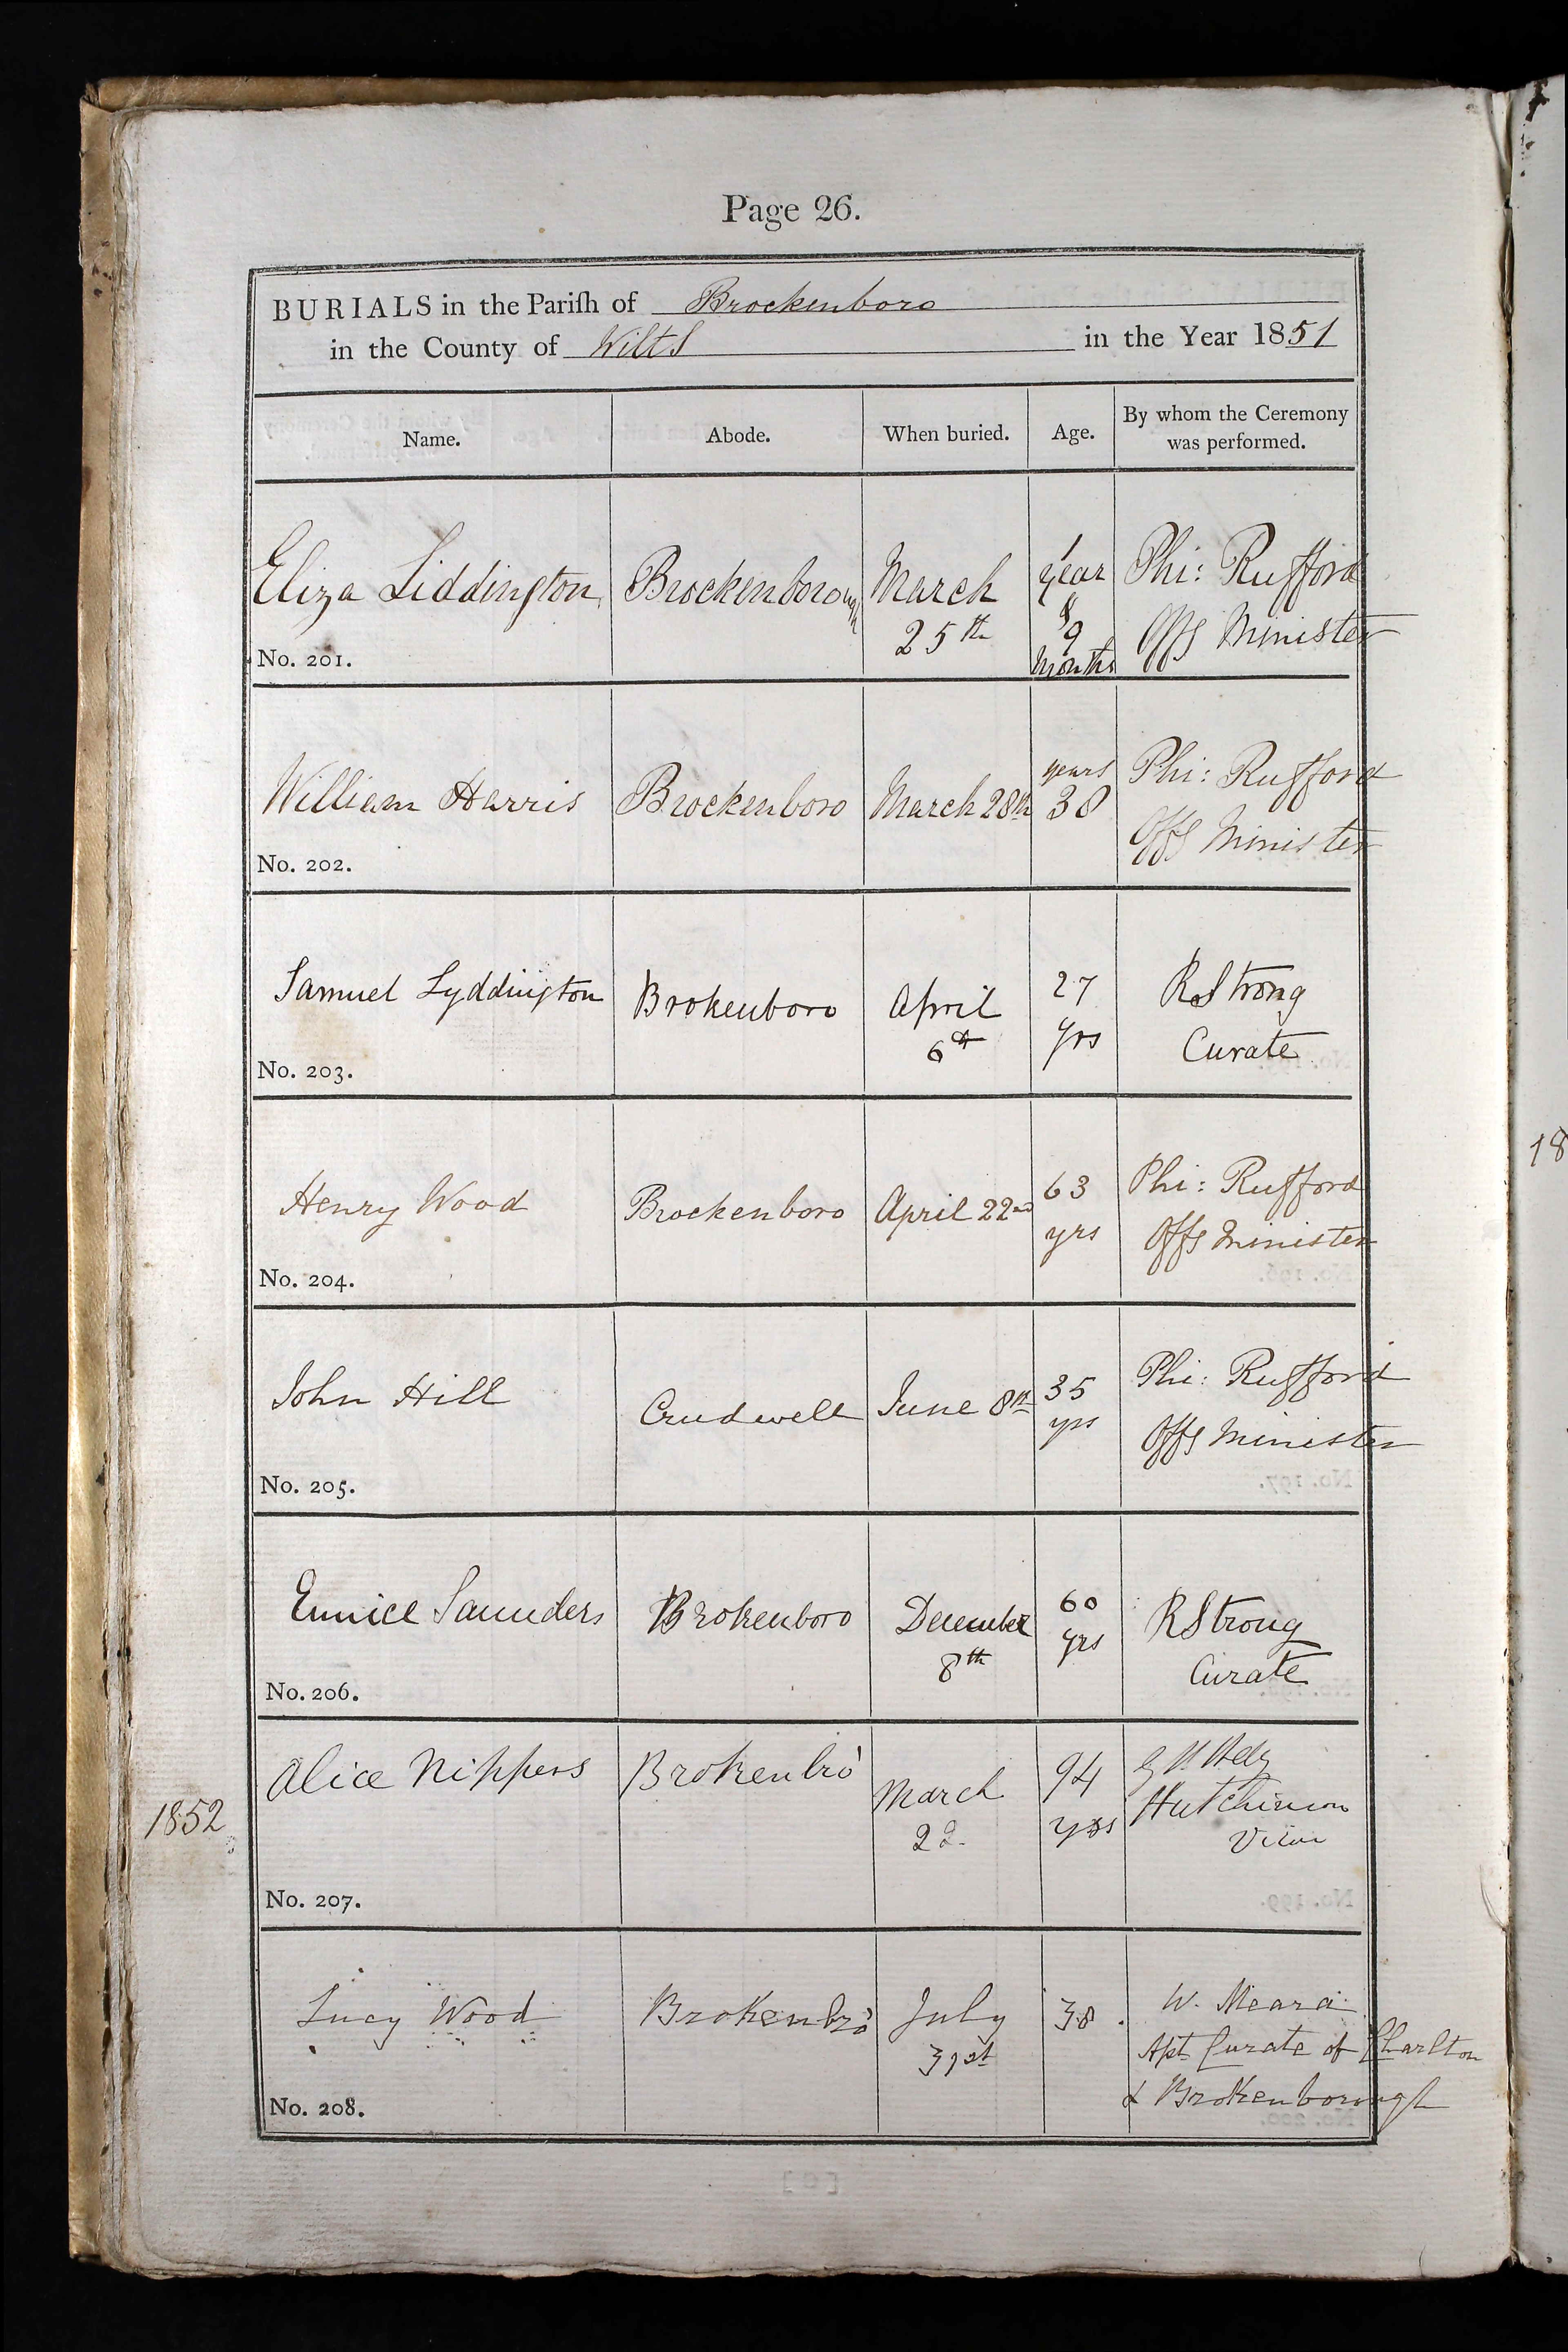 Page 26.
BURIALS in the Pariſh of Brockenboro
in the County of Wilts in the Year 1851
Name. Abode. When buried. Age. By whom the Ceremony was performed.
Eliza Liddington Brockenborough March 25th 1 year & 9 Months Phi: Rufford Offg Minister
No. 201.
William Harris Brockenboro March 28th years 38 Phi: Rufford Offg Minister
No. 202.
Samuel Lyddington Brokenboro April 6th 27 yrs RStrong Curate
No. 203.
Henry Wood Brockenboro April 22nd 63 yrs Phi: Rufford Offg Minister
No. 204.
John Hill Crudwell June 8th 35 yrs Phi: Rufford Offg Minister
No. 205.
Eunice Saunders Brokenboro December 8th 60 yrs RStrong Curate
No. 206.
1852
Alice Nippers Brokenbro' March 22 94 yrs Hutchinson Vicar
No. 207.
Lucy Wood Brokenbro' July 31st 38. W. Meara Apt Curate of Charlton & Brokenborough
No. 208.
18